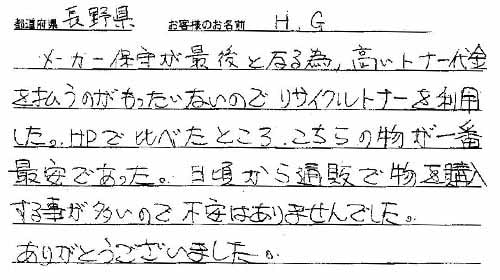 都道府県 長野県 お客様のお名前 H.G
メーカー保守が最後となる為、高いトナー代金
を払うのがもったいないのでリサイクルトナーを利用
した。HPで比べたところ、こちらの物が一番
最安であった。日頃から通販で物を購入
する事が多いので不安はありませんでした。
ありがとうございました。